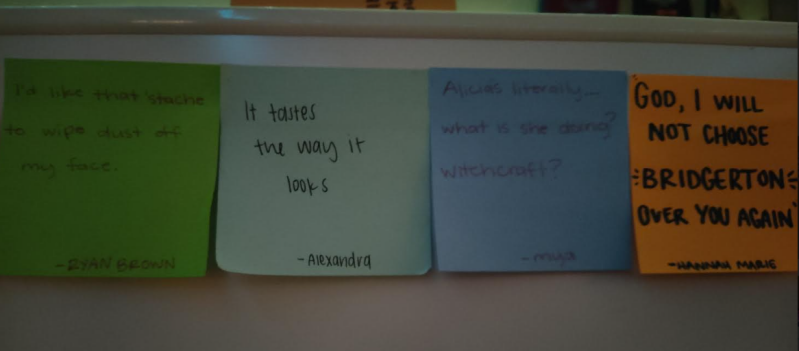 I'd like that 'stache
to wipe dust off
my face.
-RYAN BROWN
It tastes
the way it
looks
-Alexandra
Alicia's literally—
what is she doing?
witchcraft?
-miya
GOD, I WILL
NOT CHOOSE
BRIDGERTON
OVER YOU AGAIN
-HANNAH MARIE